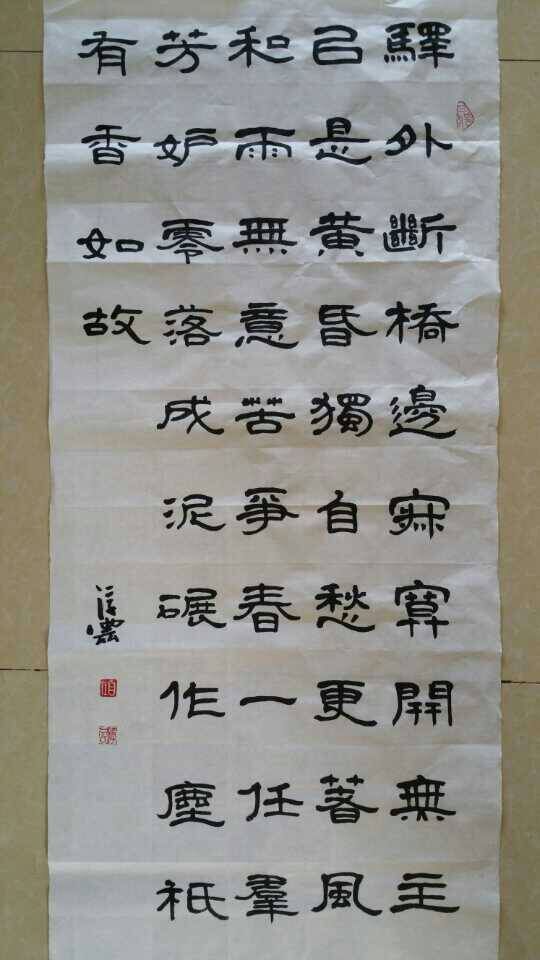 驛外斷橋邊寂寞開無主
已是黃昏獨自愁更著風
和雨無意苦爭春一任羣
芳妒零落成泥碾作塵祇
有香如故